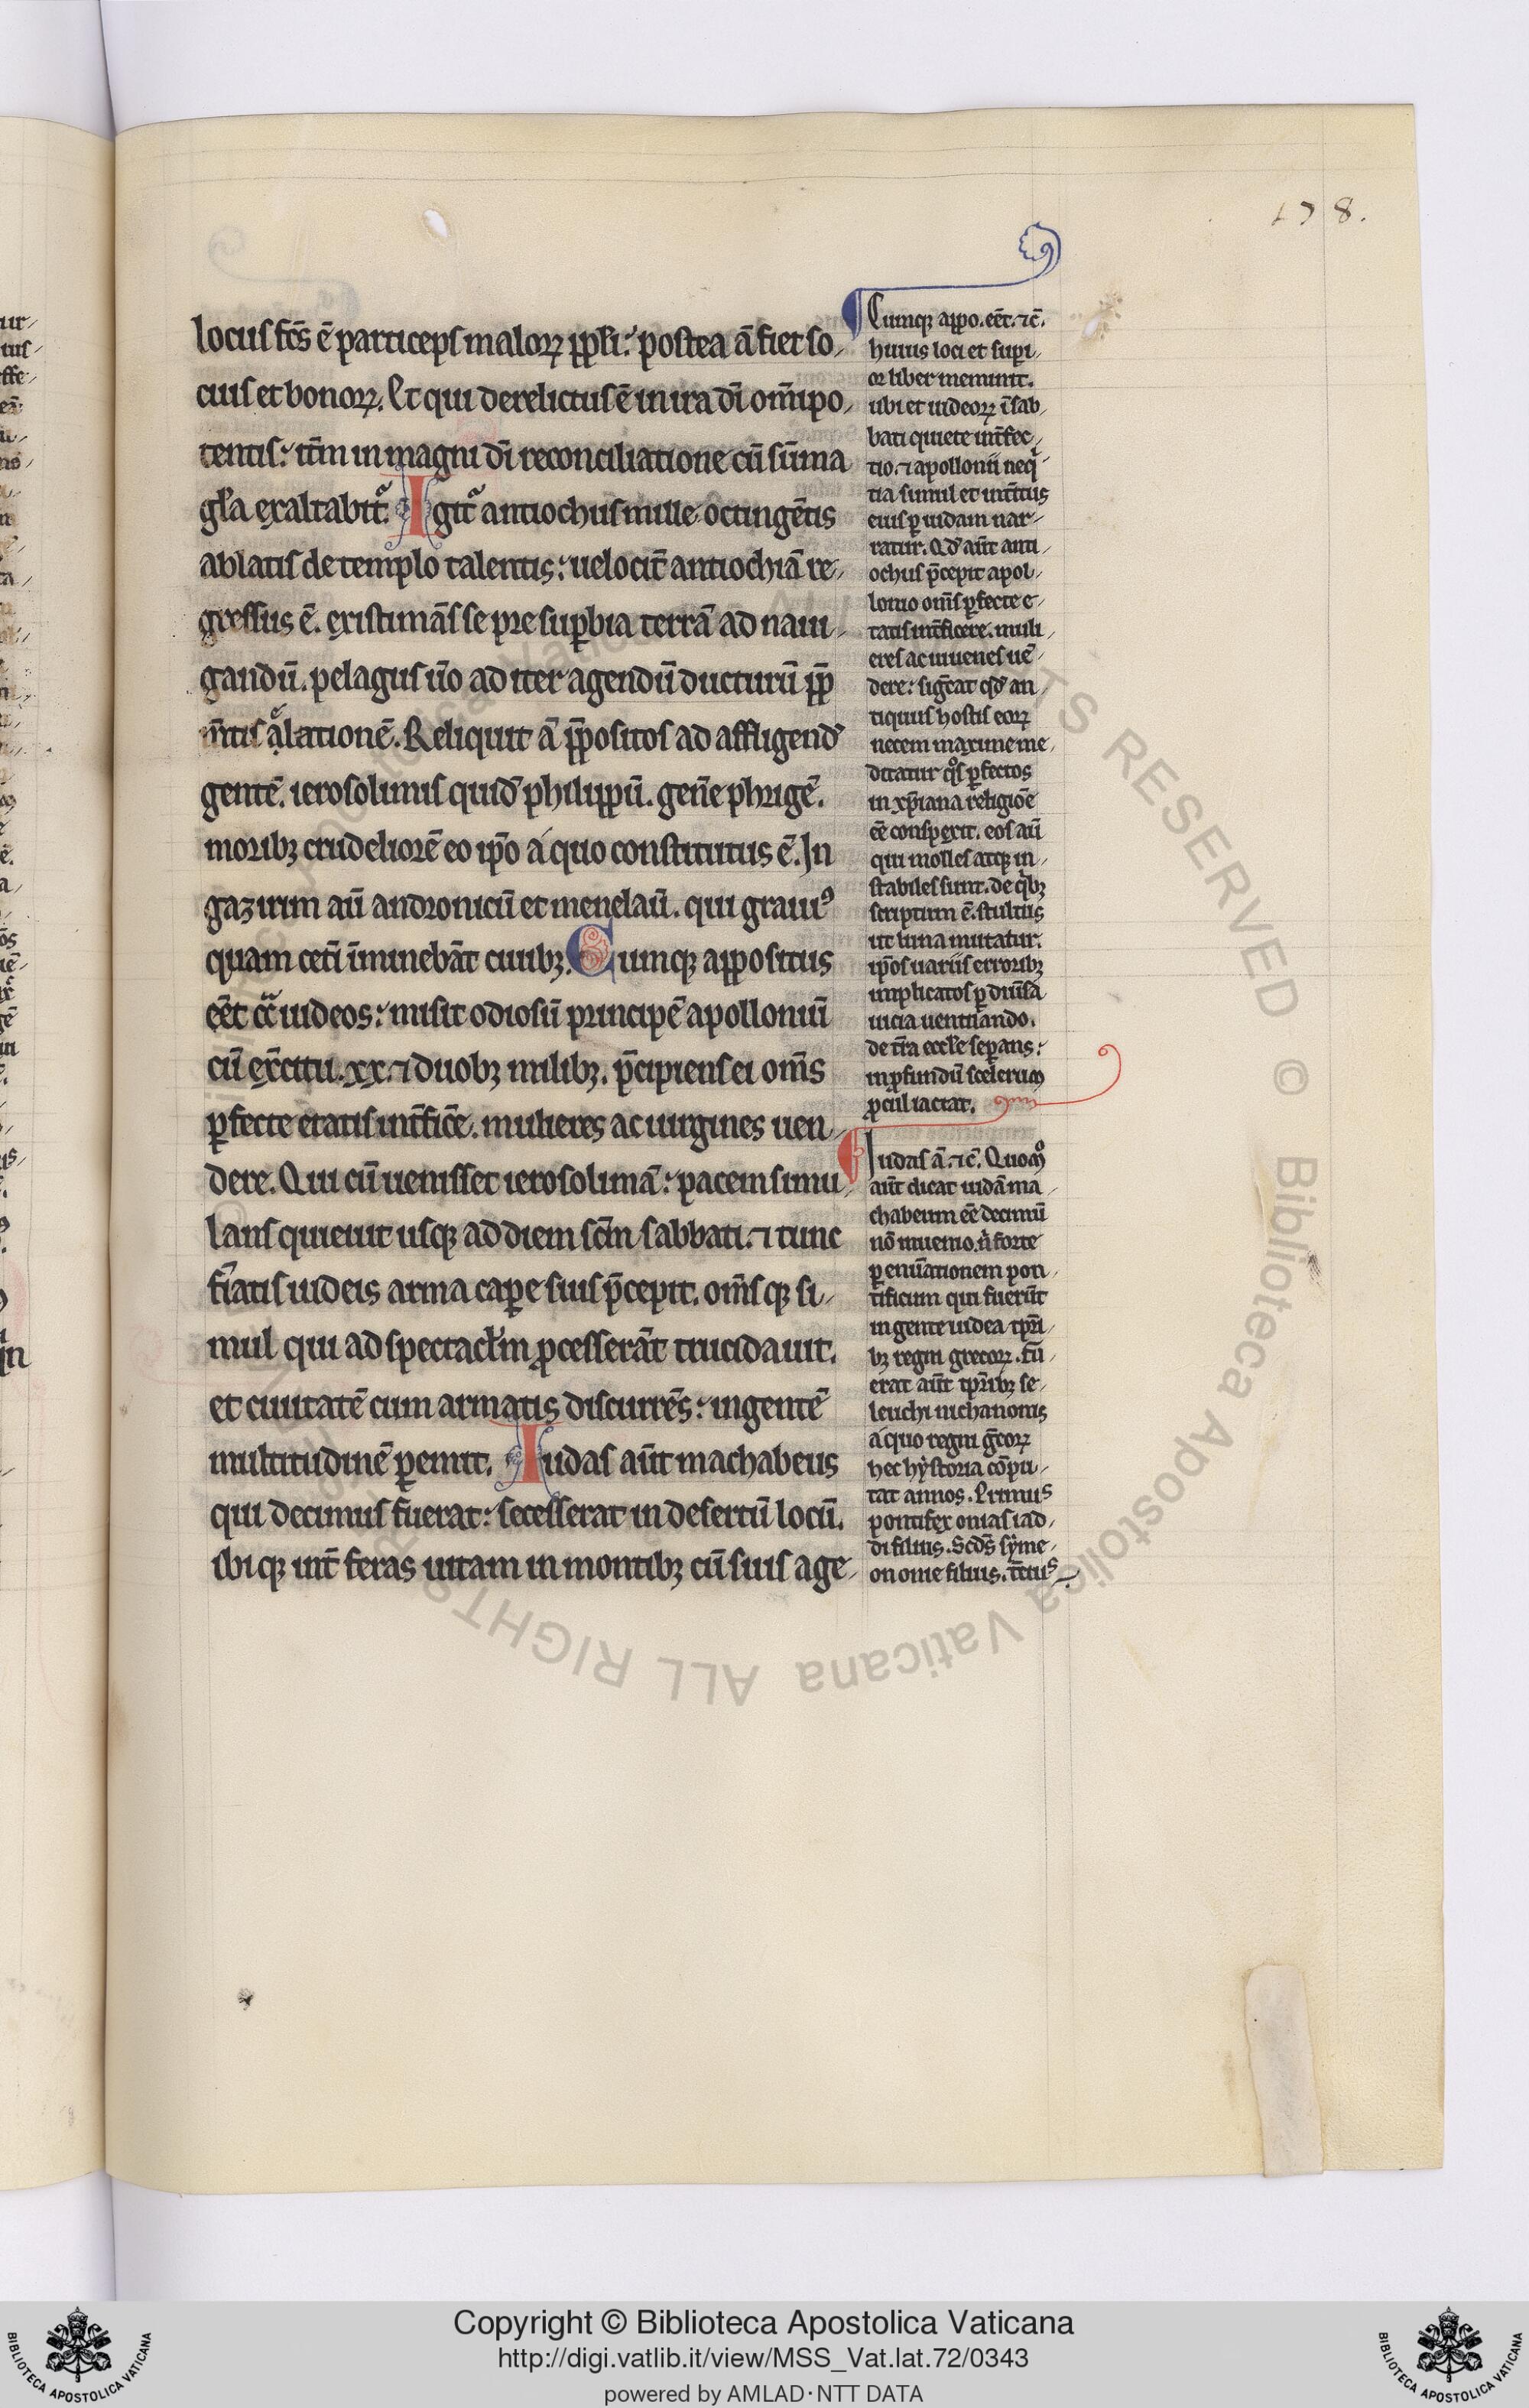 178.
locus fc̄s ē particeps maloꝝ ppl̄i: postea ā fiet so
cius et bonoꝝ. Et qui derelictus ē in ira dī om̄ipo
tentis: itm̄ in magni dī reconciliatione cū sūma
gl̄a exaltabit᷑. Igit᷑ antiochus mille octingētis
ablatis de templo talentis: uelocit̄ antiochiā re
gressus ē. existimās se pre suꝑbia terrā ad naui
gandū. pelagus ūo ad iter agendū ducturū ꝓp̄
m̄tis elationē. Reliquit ā p̄positos ad affligend̄
gentē. ierosolimis quid̄ philippū. gen̄e phrigē.
moribꝫ crudeliorē eo ip̄o a quo constitutus ē. In
gazirim aū andronicū et menelaū. qui graui⁹
quam cet̄i īminebāt ciuibꝫ. Cumqꝫ appositus
eēt cͣ iudeos: misit odiosū principē apolloniū
cū ex̄citu .xx. ⁊ duobꝫ milibꝫ. p̄cipiens ei om̄s
ꝑfecte etatis int̄fic̄e. mulieres ac uirgines uen
dere. Qui cū uenisset ierosolimā: pacem simu
lans quieuit usqꝫ ad diem sc̄m sabbati. ⁊ tunc
fiatis iudeis arma caꝑe suis p̄cepit. om̄sqꝫ si
mul qui ad spectacl̄m ꝓcesserāt trucidauit.
et ciuitatē cum armatis discurrēs: ingentē
multitudinē ꝑemit. Iudas aūt machabeus
qui decimus fuerat: secesserat in desertū locū.
ibiqꝫ int̄ feras uitam in montibꝫ cū suis age
Cumqꝫ appo. eēt. ⁊c̄.
huius loci et suꝑi
or liber meminit.
ubi et iudeoꝝ ī sab
bati quiete int̄fec
tio. ⁊ apollonii neqͥ
tia simul et int̄itus
eius ꝑ iudam nar
ratur. Qd̄ aūt anti
ochus p̄cepit apol
lonio om̄s ꝑfecte e
tatis int̄ficere. muli
eres ac iuuenes uē
dere: siḡcat qd̄ an
tiquus hostis eoꝝ
necem maxime me
ditatur qͦs ꝑfectos
in xp̄iana religiōe
eē conspexit. eos aū
qui molles atqꝫ in
stabiles sunt. de qͥbꝫ
scriptum ē. stultus
ut luna mutatur.
ip̄os uariis erroribꝫ
implicatos ꝑ diūsa
uicia uentilando.
de t̄ra eccl̄e seꝑans:
in ꝓfundū scelerum
ꝓcul iactat.
Iudas ā. ⁊c̄. Quomͦ
aūt dicat iudā ma
chabeum eē decimū
nō inuenio. n̄ forte
ꝑ enūationem pon
tificum qui fuerūt
in gente iudea tꝑri
bꝫ regni grecoꝝ. fū
erat aūt tꝑribꝫ se
leuchi nichanoris
a quo regni ḡcoꝝ
hec hystoria cōpu
tat annos. Primus
pontifex onias iad
di filius. Scd̄s syme
on onie filius. t̄cius
Copyright © Biblioteca Apostolica Vaticana
http://digi.vatlib.it/view/MSS_Vat.lat.72/0343
powered by AMLAD·NTT DATA